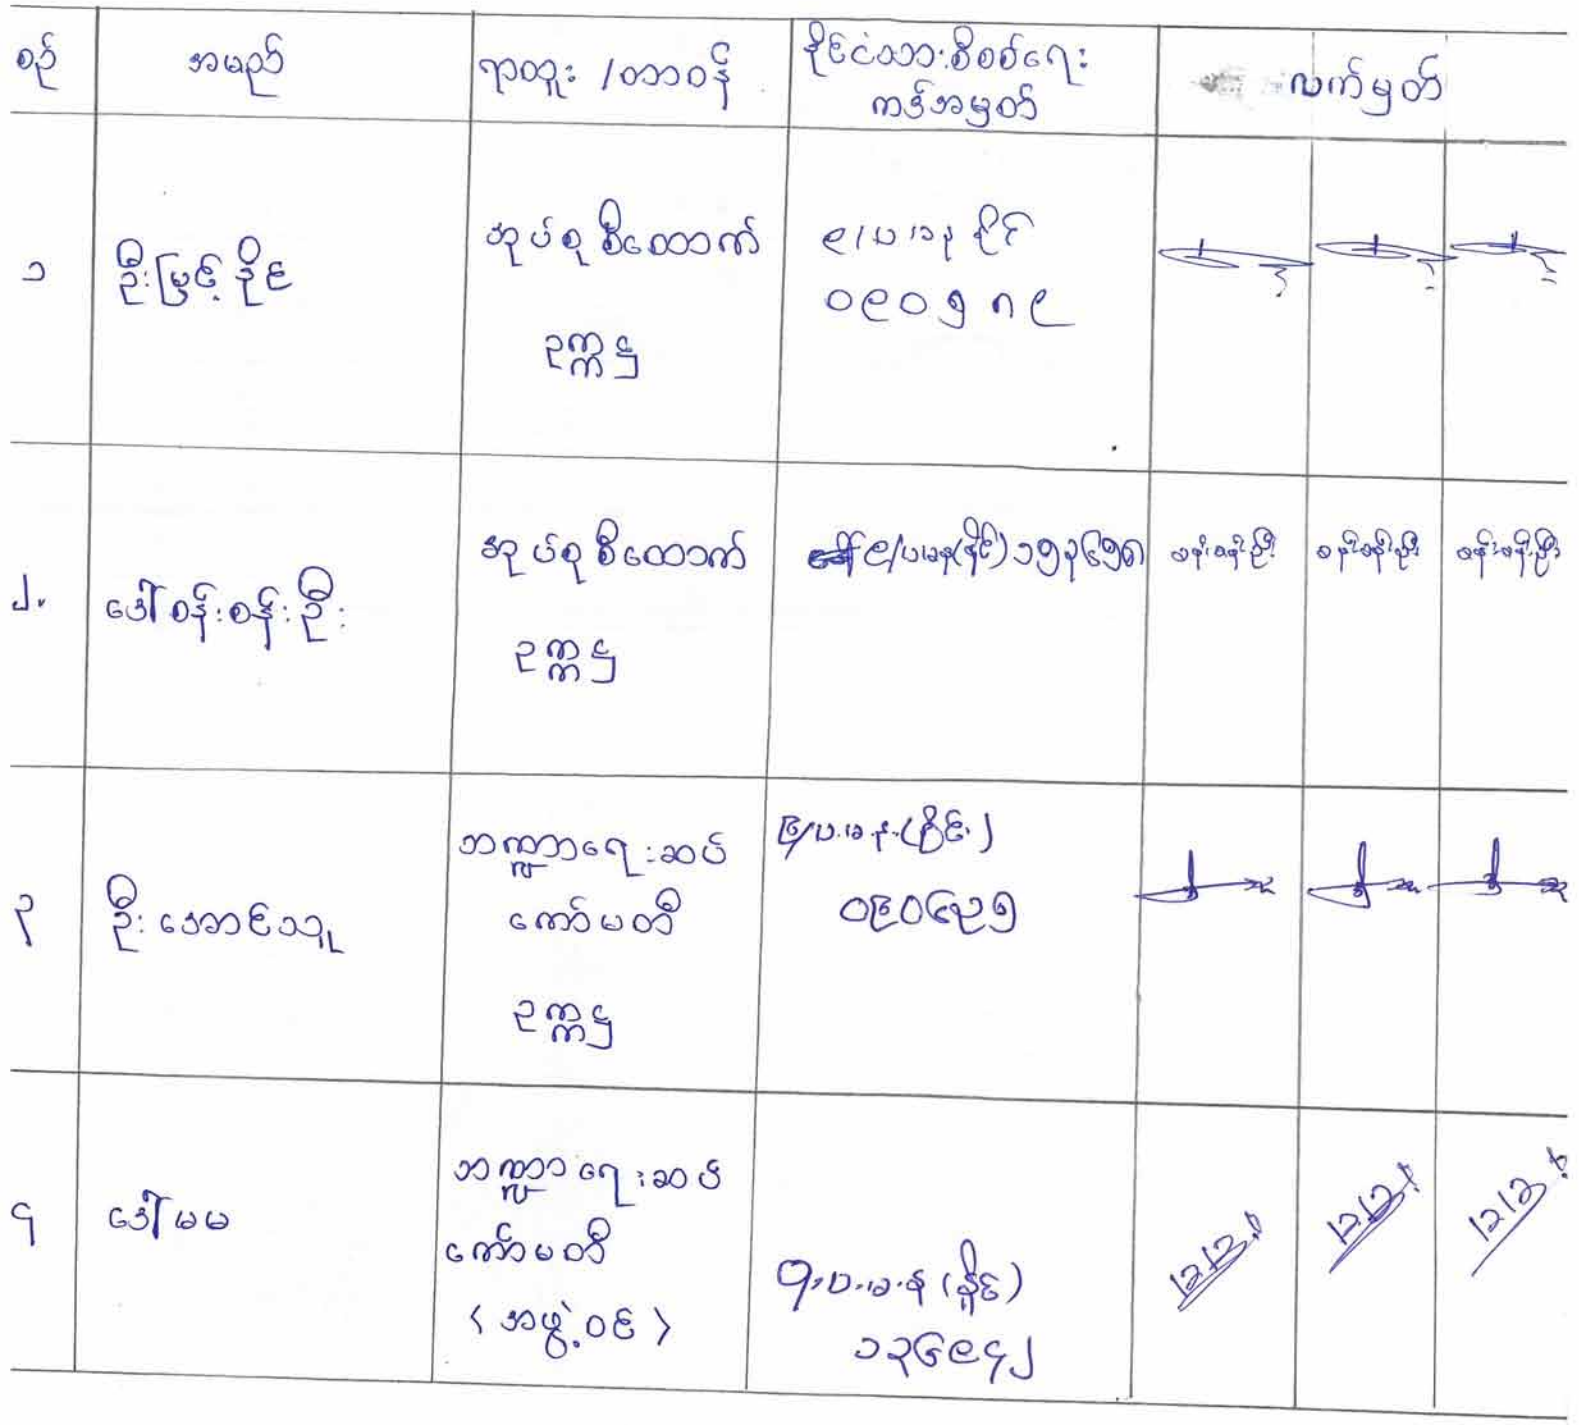 စဉ်
အမည်
ရာထူး /တာဝန်
နိုင်ငံသားစိစစ်ရေး
ကဒ်အမှတ်
လက်မှတ်
၁
ဦးမြင့်နိုင်
အုပ်စုစီထောက်
ဥက္ကဋ္ဌ
၉/ပမန နိုင်
၀၉၀၅၈၉
၂.
ဒေါ်စန်းစန်းဦး
အုပ်စုစီထောက်
ဥက္ကဋ္ဌ
၉/ပမန(နိုင်)၁၅၃၆၅၈
စန်းစန်းဦး
စန်းစန်းဦး
စန်းစန်းဦး
၃
ဦးအောင်သူ
ဘဏ္ဍာရေးဆပ်
ကော်မတီ
ဥက္ကဋ္ဌ
၉/ပ.မ.န.(နိုင်)
၀၉၀၆၉၅
၄
ဒေါ်မမ
ဘဏ္ဍာရေးဆပ်
ကော်မတီ
< အဖွဲ့ဝင် >
၉.ပ.မ.န (နိုင်)
၁၃၆၉၄၂